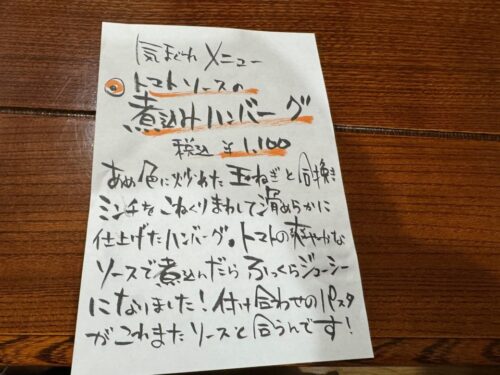 気まぐれメニュー
トマトソースの
煮込みハンバーグ
税込 ¥1,100
あめ色に炒めた玉ねぎと合挽き
ミンチをこねくりまわして滑らかに
仕上げたハンバーグ。トマトの爽やかな
ソースで煮込んだらふっくらジューシー
になりました！付け合わせのパスタ
がこれまたソースと合うんです！